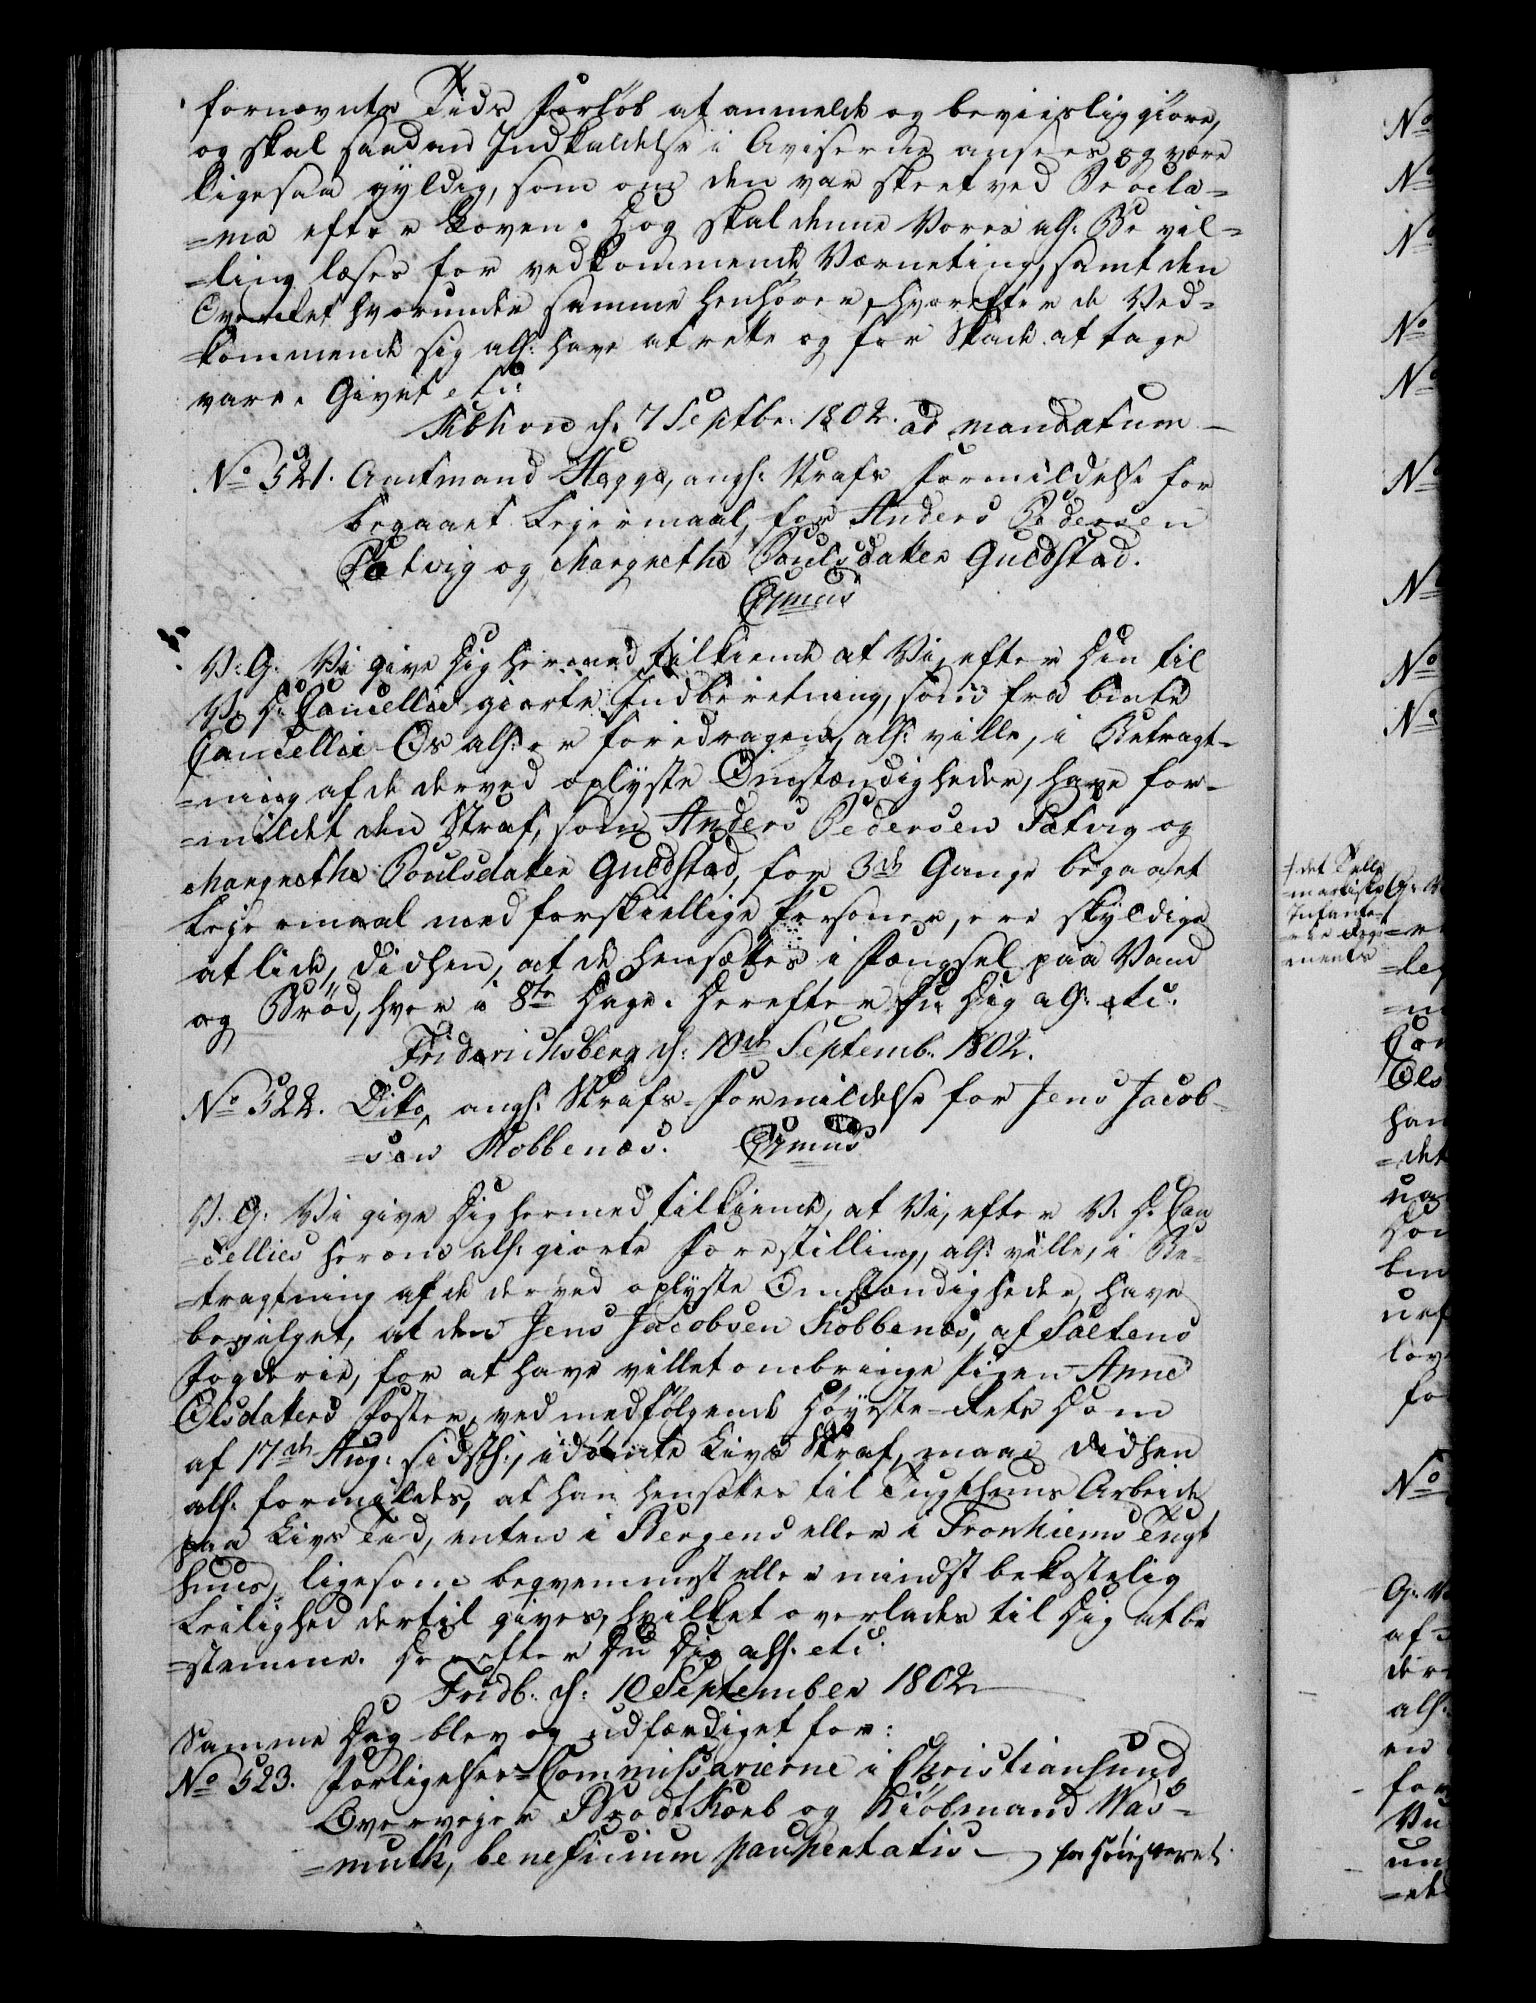 fornævnte Tids Forløb at anmelde og beviisliggiöre,
og skal saadan Indkaldelse i Aviserne ansees og være
ligesaa gyldig, som om den var skeet ved Procla-
=ma efter Loven. Dog skal denne Vores alh: Bevil-
=ling læses for vedkommende Værneting, samt den
Overret hvorunder samme henhører, hvorefter de Ved-
=kommende sig alh: have at rette og for Skade at tage
vare. Givet etc:
Kbhavn d: 7 Septbr: 1802. ad mandatum
No 521. Amtmand Hagge, angl: Strafs Formildelse for
begaaet Lejermaal, for Anders Pedersen
Sætvig og Margrethe Poulsdatter Guldstad.
V: G: Vi give Dig hermed tilkiende at Vi, efter Din til
V. D: Cancellie giorte Indberetning, som fra bmte
Cancellie Os alh: er foredragen, alh: ville, i Betragt-
=ning af de derved oplyste Omstændigheder, have for-
=mildet den Straf, som Anders Pedersen Sætvig og
Margrethe Poulsdatter Guldstad, for 3de Gange begaaet
Lejermaal med forskiellige Personer, ere skyldige
at lide, didhen, at de hensættes i Fængsel paa Vand
og Brød, hver i 8te Dage. Derefter Du Dig alh: etc:
Friderichsberg d: 10de Septemb: 1802.
No 522. Dito, angl: Strafs-Formildelse for Jens Jacob-
=sen Kobbenæs.
V. G: Vi give Dig hermed tilkiende, at Vi, efter V. D: Can
=cellies herom alh: giorte Forestilling, alh: ville, i Be-
=tragtning af de derved oplyste Omstændigheder, have
bevilget, at den Jens Jacobsen Kobbenæs, af Saltens
Fogderie, for at have villet ombringe Pigen Anne
Olsdatters Foster, ved medfølgende Høyeste-Rets Dom
af 17de Aug: sidstl:, idømte Livs Straf, maae didhen
alh: formildes, at han hensættes til Tugthuus Arbeide
paa Livs Tid, enten i Bergens eller i Tronhiems Tugt
huus, ligesom beqvemmest eller mindst bekostelig
Leilighed dertil gives, hvilket overlades til Dig at be
=stemme. Derefter Du Dig alh: etc:
Fridb: d: 10 September 1802
Samme Dag blev og udfærdiget for:
No 523. Forligelses-Commissarierne i Christiansund,
Overvejer Brodtkorb og Kiöbmand Was-
=muth, beneficium paupertatis for Höiesteret.
† det Telle
=markiske
Infante-
=rie Regi
=ments
No
No
No
No
No
No
No
No
No
No